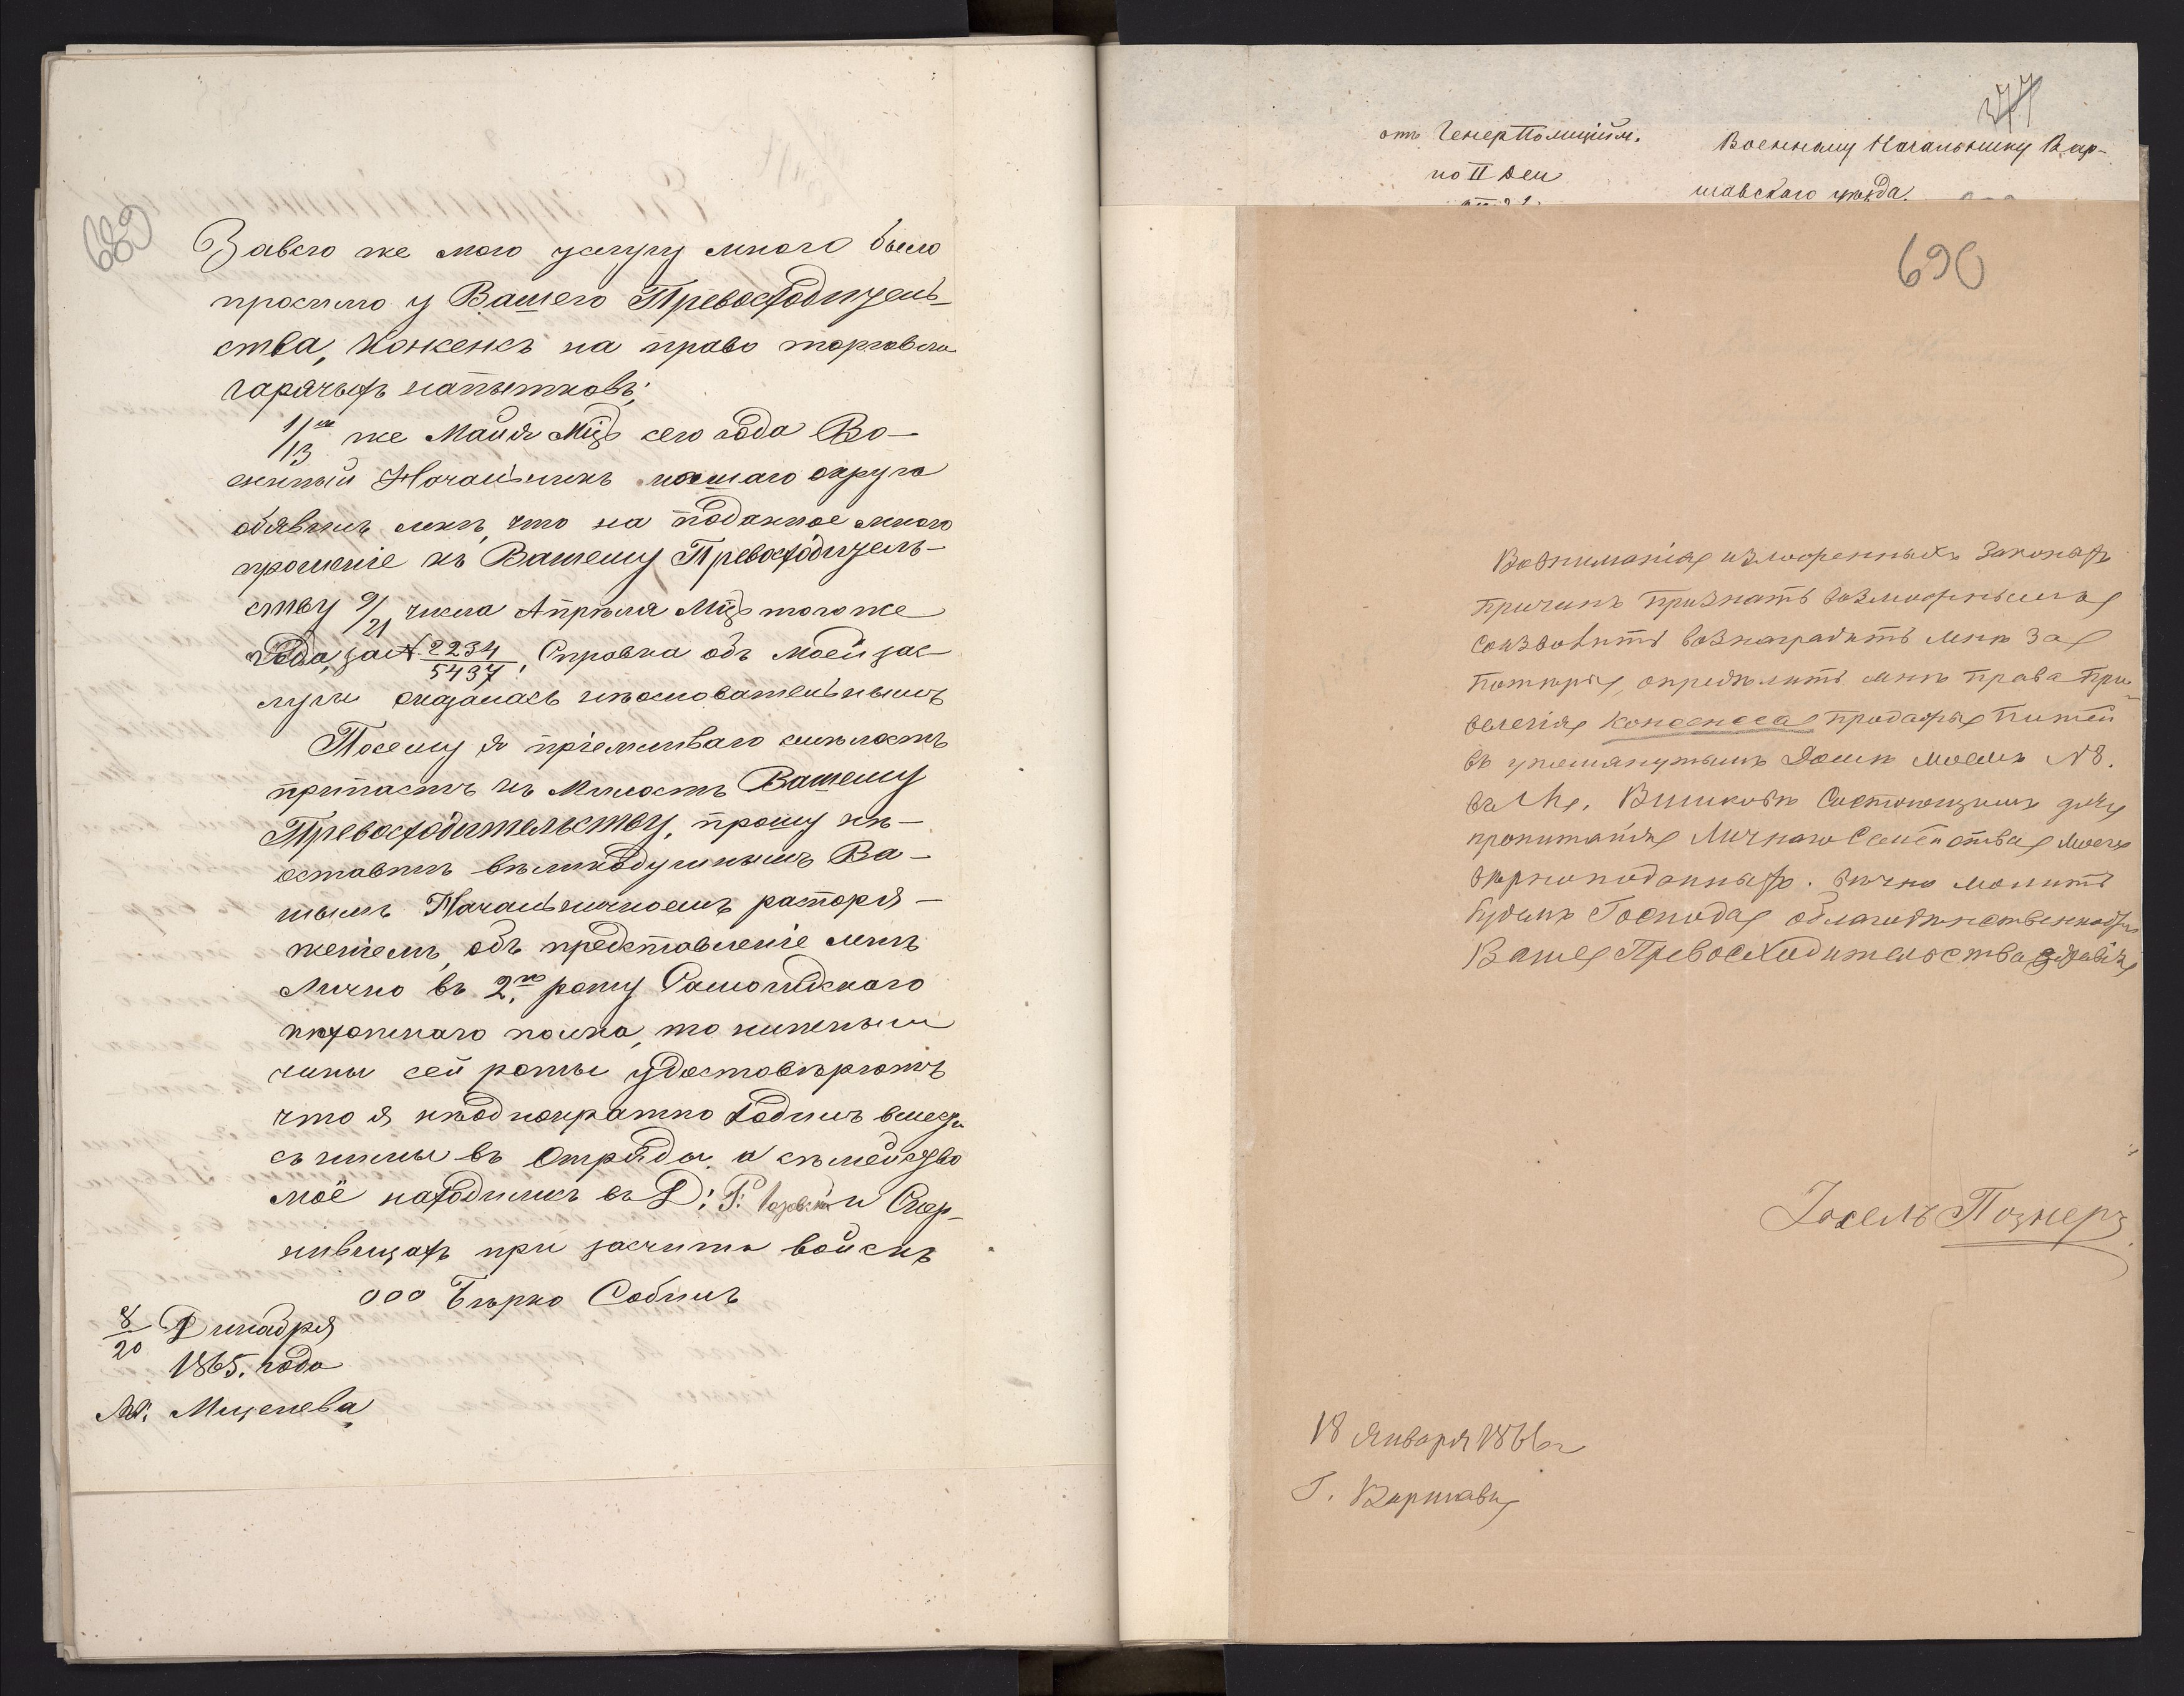 689
Завсю же мою услугу мною было
просимо у Вашего Превосходитель-
ства, Конкенсъ на право торговли
гарячыхъ напытковъ;
1/13 го же Майя Мцѣ сего года Во-
енный Началникъ нашаго округа
обявилъ мнѣ, что на поданное мною
прошеніе къ Вашему Превосходитель-
ству 9/21 числа Апрѣля Мцѣ тогоже
Года, за № 2234/5437, Справка объ моей зас-
луги оказалась неосновательнымъ
Посему я пріемливаю смѣлость
припасть къ Милость Вашему
Превосходительству, прошу не-
оставить великодушнымъ Ва-
шымъ Началничномъ распоря-
женіемъ, объ представленіе мнѣ
Лично въ 2.ю роту Самогидскаго
пѣхотнаго полка, то нижными
чины сей роты удостовѣрютъ
что я неоднократно ходилъ вместѣ
съ ними въ Отряды, а сѣмейство
моё находились въ Д: Г: и Скер-
нивицахъ при засчита войскъ
ооо Бѣрко Собшъ
8/20 Дикабря
1865. года
М. Мщенева
377
отъ ГенерПолицийм.
по II Деп
Военному Начальнику Вар-
шавского уѣзда.
690
Вовниманіе изложенныхъ Законахъ
Причинъ Признать возможнымъ
Соизволить вознаградить мнѣ За
Потѣри, опредѣлить мнѣ Права При-
велегія Консенса продажы Питей
въ упомянутымъ Домѣ моемъ № 8.
въ Вишковѣ Состоющимъ для
пропитанія Личнаго Семейства моего
вѣрноподанныхъ. вѣчно молить
будемъ Господа облагоденственнодѣн
Ваше Превосходительства здравіе
Іосель Познеръ
18 Января 1866 г
Г. Варшава